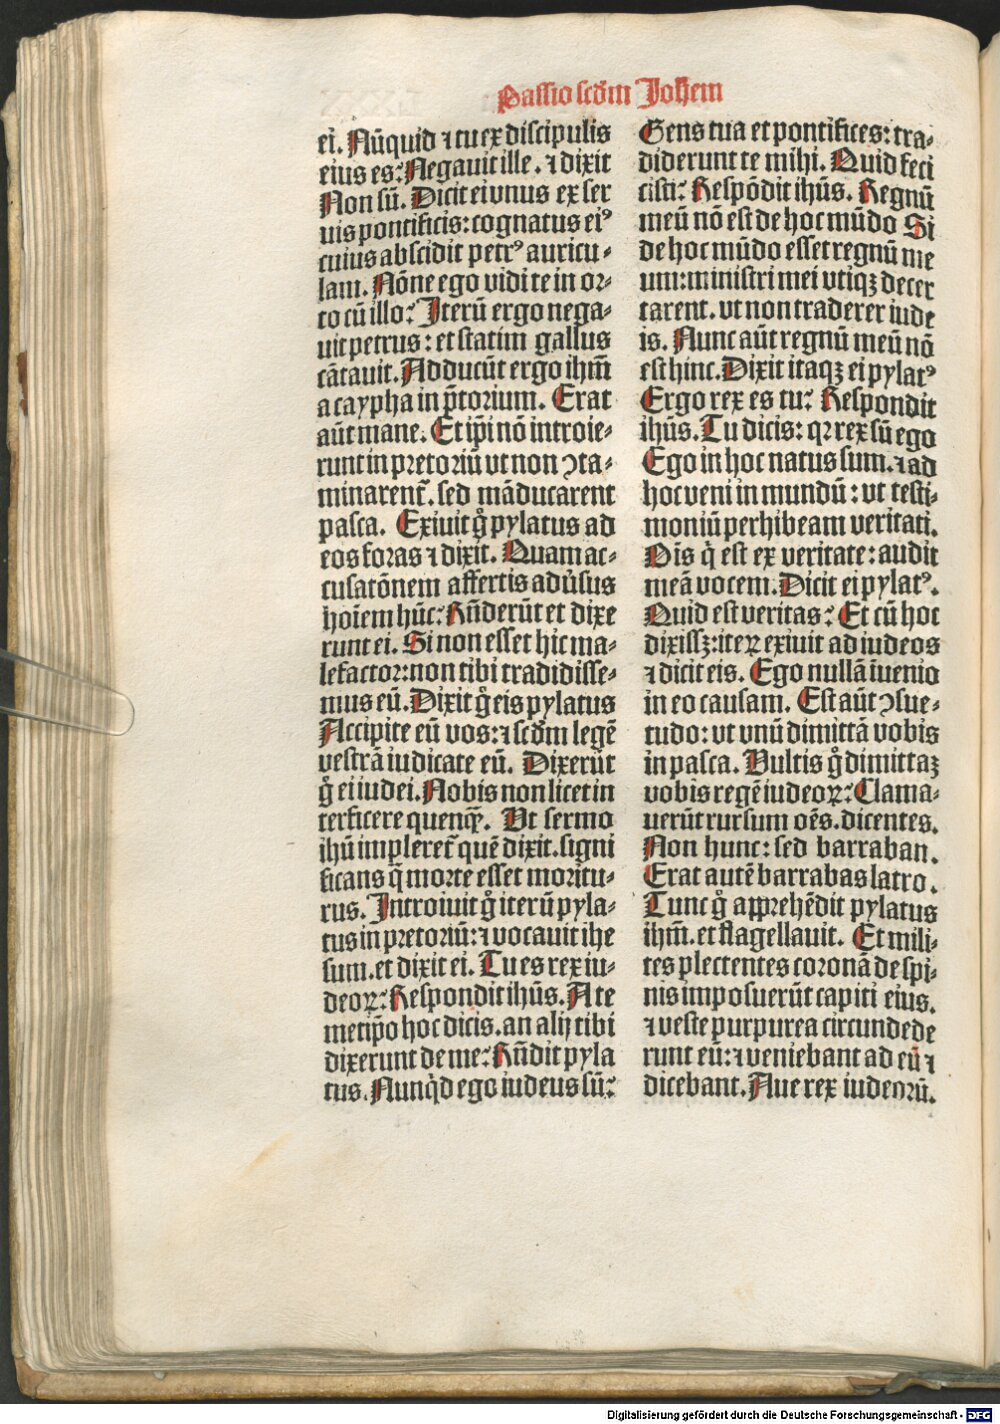 Passio scd̄m Joh̄em
ei. Nūquid ⁊ tu ex discipulis
eius es: Negauit ille. ⁊ dixit
Non sū. Dicit ei vnus ex ser
uis pontificis: cognatus eiꝰ
cuius abscidit petrꝰ auricu-
lam. Nōne ego vidi te in or-
to cū illo: Iterū ergo nega-
uit petrus: et statim gallus
cātauit. Adducūt ergo ihm̄
a caypha in p̄torium. Erat
aūt mane. Et ip̄i nō introie-
runt in pretoriū vt non ꝯta-
minarent̄. sed māducarent
pasca. Exiuit gͦ pylatus ad
eos foras ⁊ dixit. Quam ac-
cusatōnem affertis aduͥsus
hoīem hūc: Rn̄derūt et dixe
runt ei. Si non esset hic ma-
lefactor: non tibi tradidisse-
mus eū. Dixit gͦ eis pylatus
Accipite eū vos: ⁊ scd̄m legē
vestrā iudicate eū. Dixerūt
gͦ ei iudei. Nobis non licet in
terficere quenqꝫ. Ut sermo
ihū impleret̄ quē dixit. signi
ficans q̄ morte esset moritu-
rus. Introiuit gͦ iterū pyla-
tus in pretoriū: ⁊ vocauit ihe
sum. et dixit ei. Tu es rex iu-
deoꝝ: Respondit ihūs. A te
metip̄o hoc dicis. an alij tibi
dixerunt de me: Rn̄dit pyla
tus. Nunqͥd ego iudeus sū:
Gens tua et pontifices: tra-
diderunt te mihi. Quid feci
cisti: Respōdit ihūs. Regnū
meū nō est de hoc mūdo Si
de hoc mūdo esset regnū me
um: ministri mei vtiqꝫ decer
tarent. vt non traderer iude
is. Nunc aūt regnū meū nō
est hinc. Dixit itaqꝫ ei pylatꝰ
Ergo rex es tu: Respondit
ihūs. Tu dicis: qꝛ rex sū ego
Ego in hoc natus sum. ⁊ ad
hoc veni in mundū: vt testi-
moniū perhibeam veritati.
Oīs qͥ est ex veritate: audit
meā vocem. Dicit ei pylatꝰ.
Quid est veritas: Et cū hoc
dixissꝫ: iteꝝ exiuit ad iudeos
⁊ dicit eis. Ego nullā īuenio
in eo causam. Est aūt ꝯsue-
tudo: vt vnū dimittā vobis
in pasca. Vultis gͦ dimittaꝫ
vobis regē iudeoꝝ: Clama-
uerūt rursum oēs. dicentes.
Non hunc: sed barraban.
Erat autē barrabas latro.
Tunc gͦ apprehēdit pylatus
ihm̄. et flagellauit. Et mili-
tes plectentes coronā de spi-
nis imposuerūt capiti eius.
⁊ veste purpurea circundede
runt eū: ⁊ veniebant ad eū ⁊
dicebant. Aue rex iudeorū.
Digitalisierung gefördert durch die Deutsche Forschungsgemeinschaft - DFG